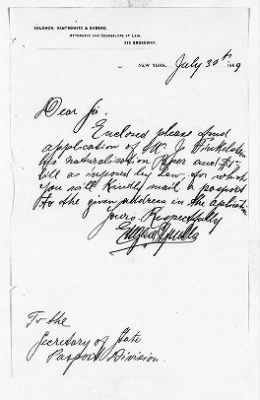 SOLOMON, KANTROWITZ & ESBERG,
ATTORNEYS AND COUNSELORS AT LAW,
BROADWAY.
NEW YORK, July 30th 1889
Dear Sir.
Enclosed please send
application of Mr. J Finkelstein
his naturalization Paper and $1-
bill as imposed by Law, for which
you will Kindly mail a passport
to the given address in the application
Yours Respectfully
To the
Secretary of State
Passport Division.